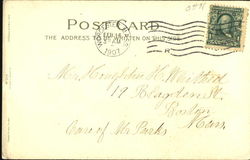 POST CARD
THE ADDRESS TO BE WRITTEN ON THIS SIDE
FEB 14
1907
Mr. Houghton H. Whithed
19 Blagden St.
Boston
Mass
Care of Mr. Parks